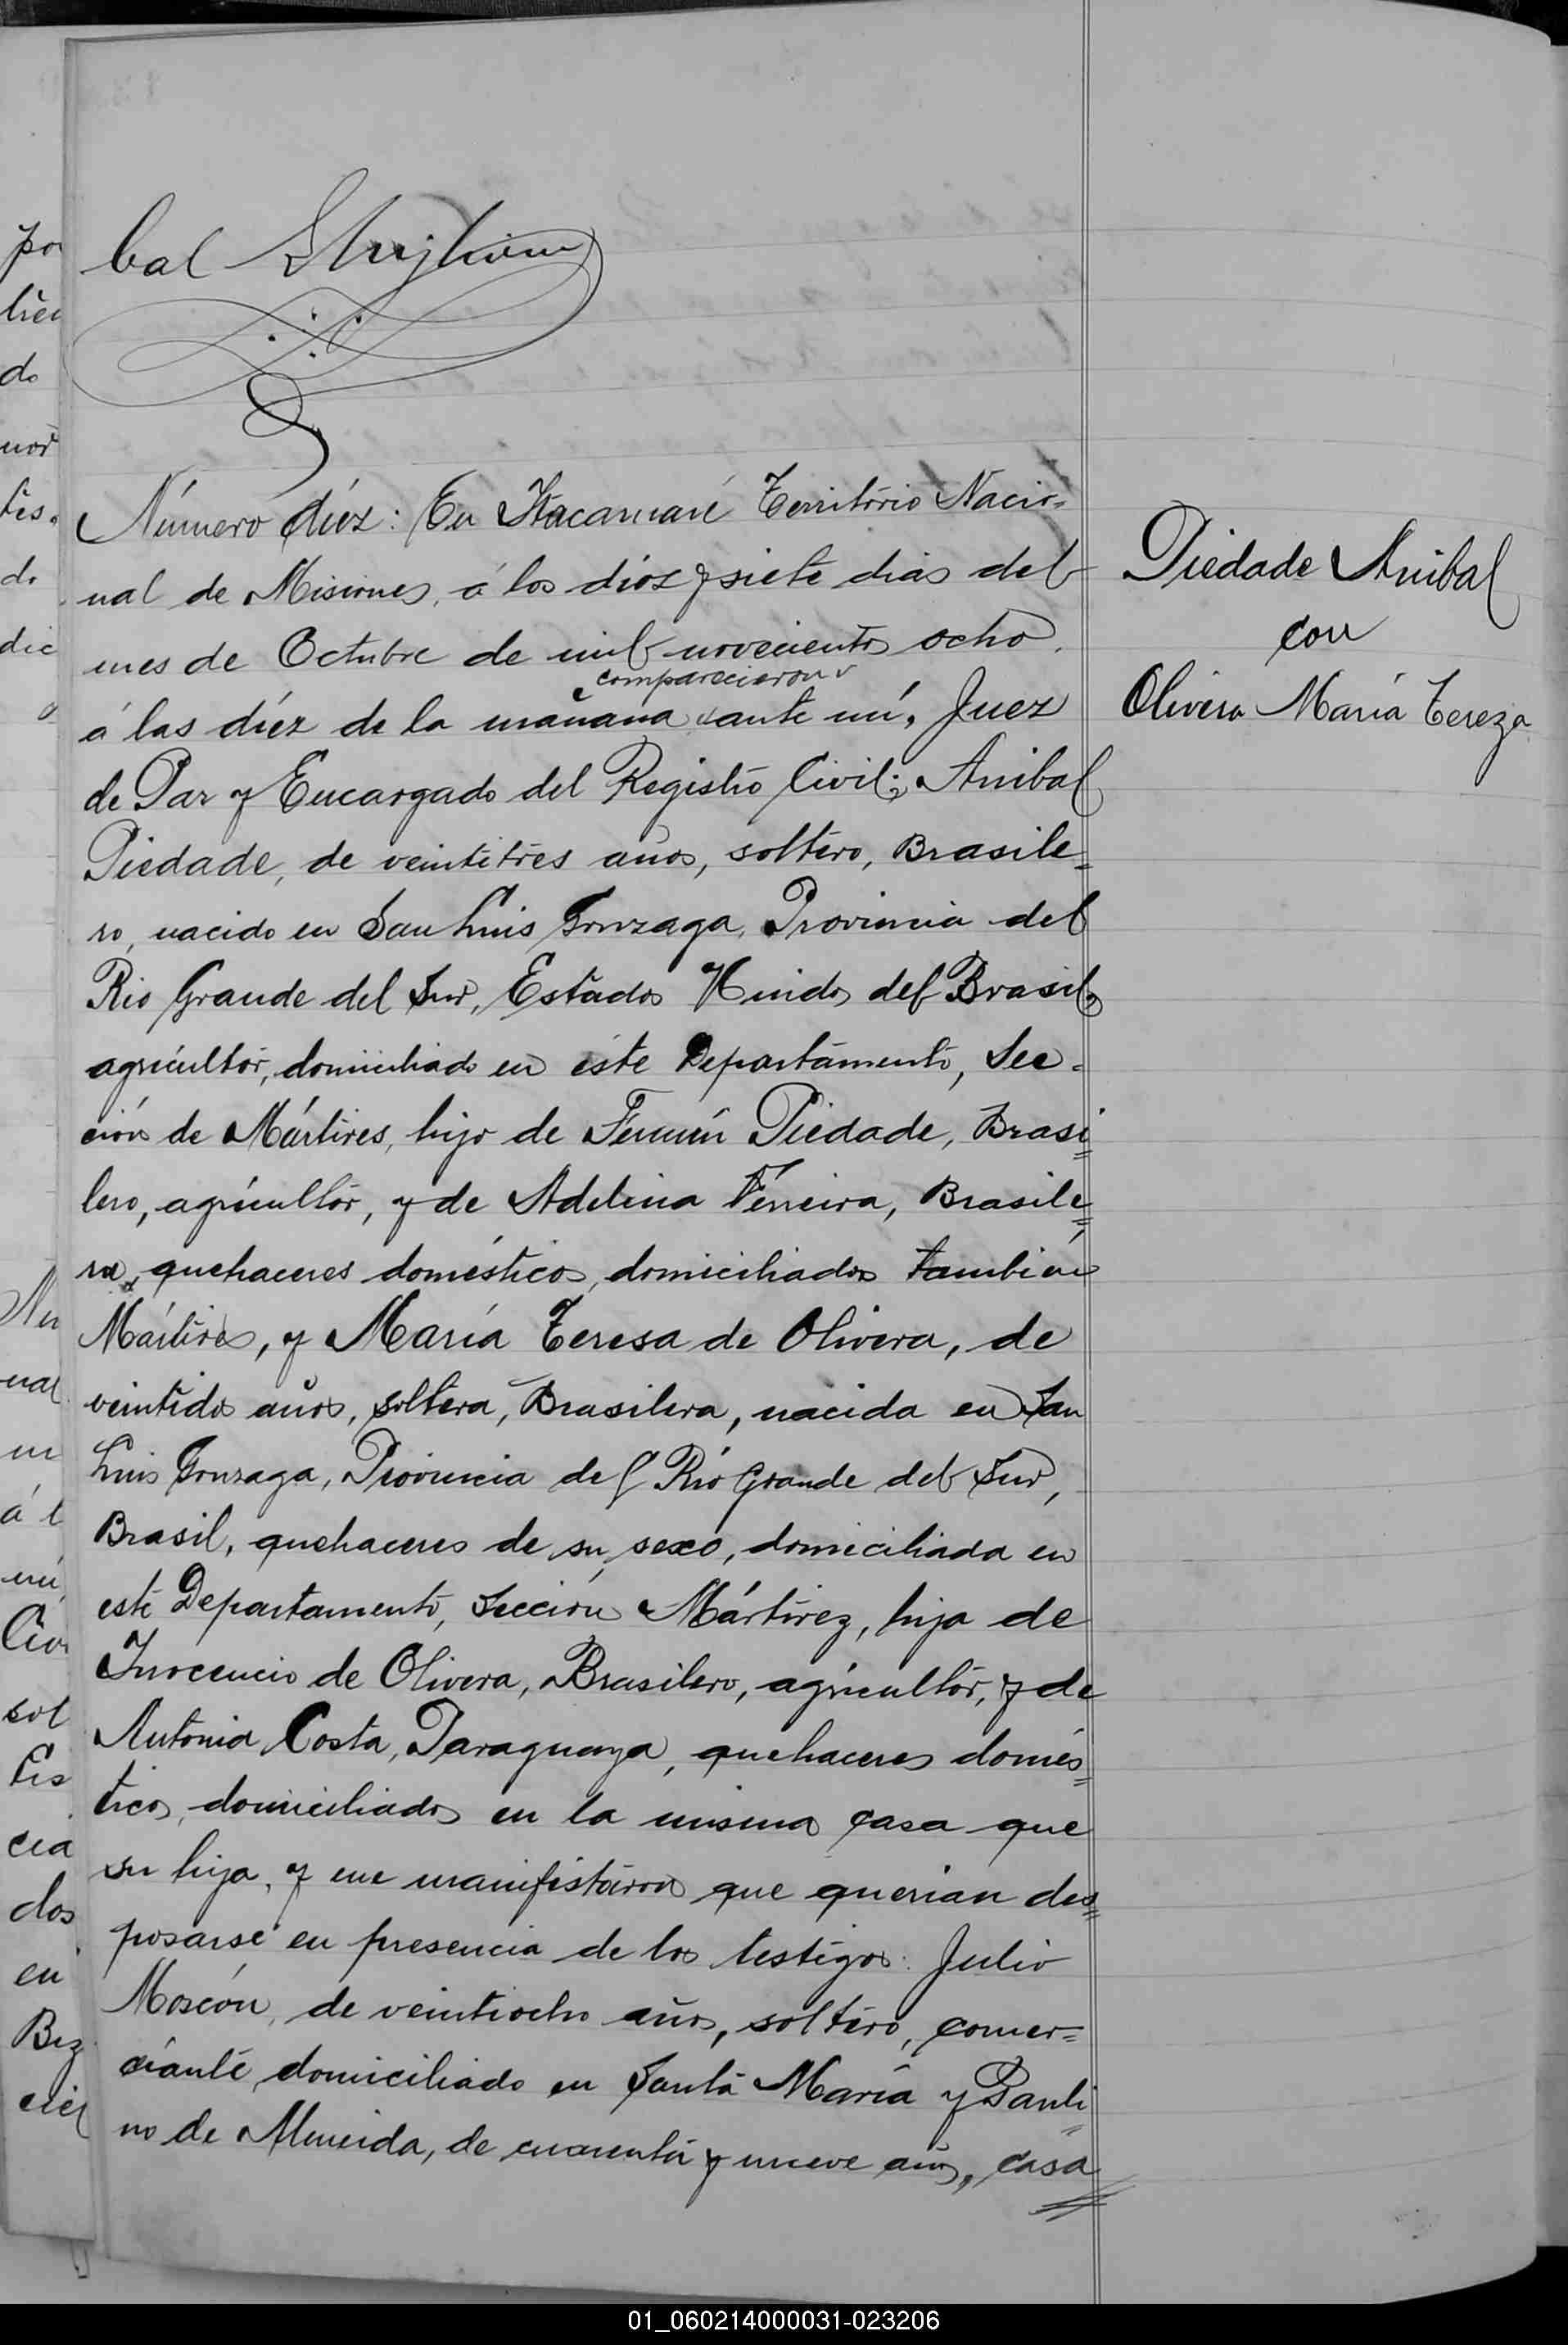 bal
Número diéz: En Itacaruaré Territorio Nacio=
nal de Misiones, á los diéz y siete dias del
mes de Octubre de mil novecientos ocho,
comparecieron
á las diéz de la mañana ante mí, Juez
de Paz y Encargado del Registro Civil; Anibal
Piedade, de veintitres años, soltero, Brasile=
ro, nacido en San Luis Gonzaga, Provincia del
Rio Grande del Sur, Estados Unidos del Brasil,
agricultor, domiciliado en este Departamento, Sec=
ción de Mártires, hijo de Fermín Piedade, Brasi=
lero, agricultor, y de Adelina Ferreira, Brasile=
ra, quehaceres domésticos, domiciliados también
Mártires, y María Teresa de Olivera, de
veintidos años, soltera, Brasilera, nacida en San
Luis Gonzaga, Provincia del Rio Grande del Sur,
Brasil, quehaceres de su sexo, domiciliada en
este Departamento, Sección Mártirez, hija de
Inocencio de Olivera, Brasilero, agricultor, y de
Antonia Costa, Paraguaya, quehaceres domés=
ticos, domiciliados en la misma casa que
su hija, y me manifestaron que querian des=
posarse en presencia de los testigos: Julio
Moscón, de veintiocho años, soltero, comer=
ciante, domiciliado en Santa María y Pauli=
no de Almeida, de cuarenta y nueve años, casa
Piedade Anibal
con
Olivera María Tereza
po
do
nor
tes.
do
dic
Nu
nal
m
á l
mi,
Civ
sol
tis
cia
dos
en
Biz
01_060214000031-023206